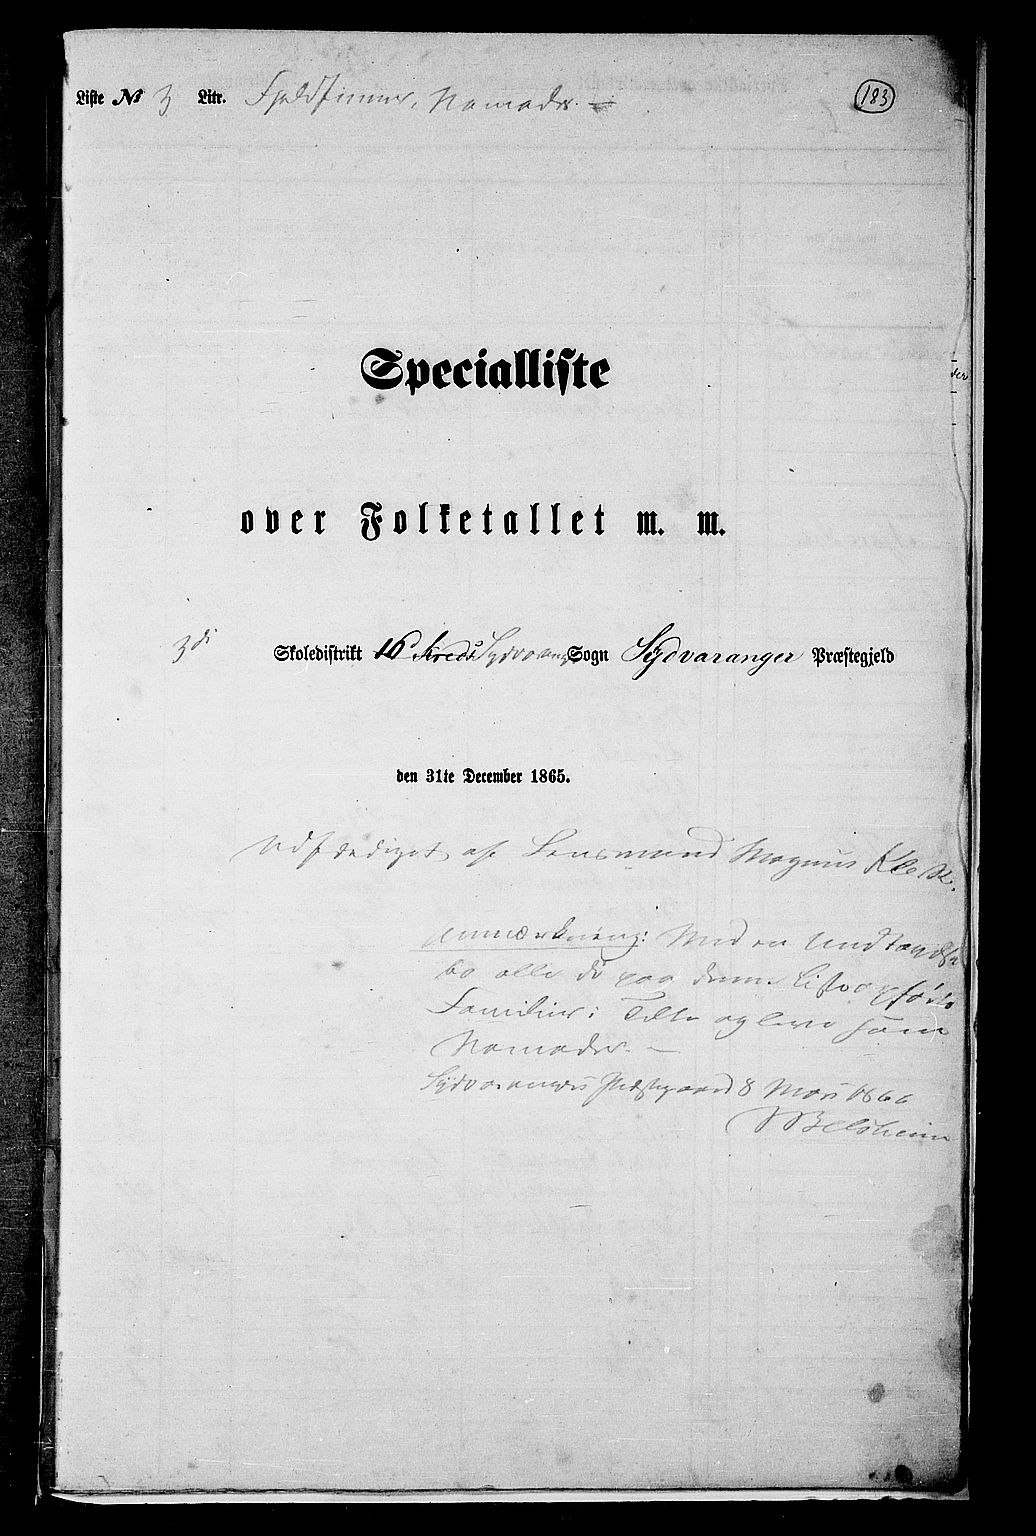 Liste No 3 Litr. Fjeldfinner, Nomader. —
183
Specialliste
over Folketallet m. m.
3di Skoledistrikt 16de Kreds Sydvaranger Sogn Sydvaranger Præstegjeld
den 31te December 1865.
Udfærdiget af Lensmand Magnus Klerk.
Anmærkning: Med en Undtagelse
bo alle de paa denne Liste opførte
Familier i Telte og leve som
Nomader. —
Sydvarangers Præstegaard 8 Mars 1866
Belsheim